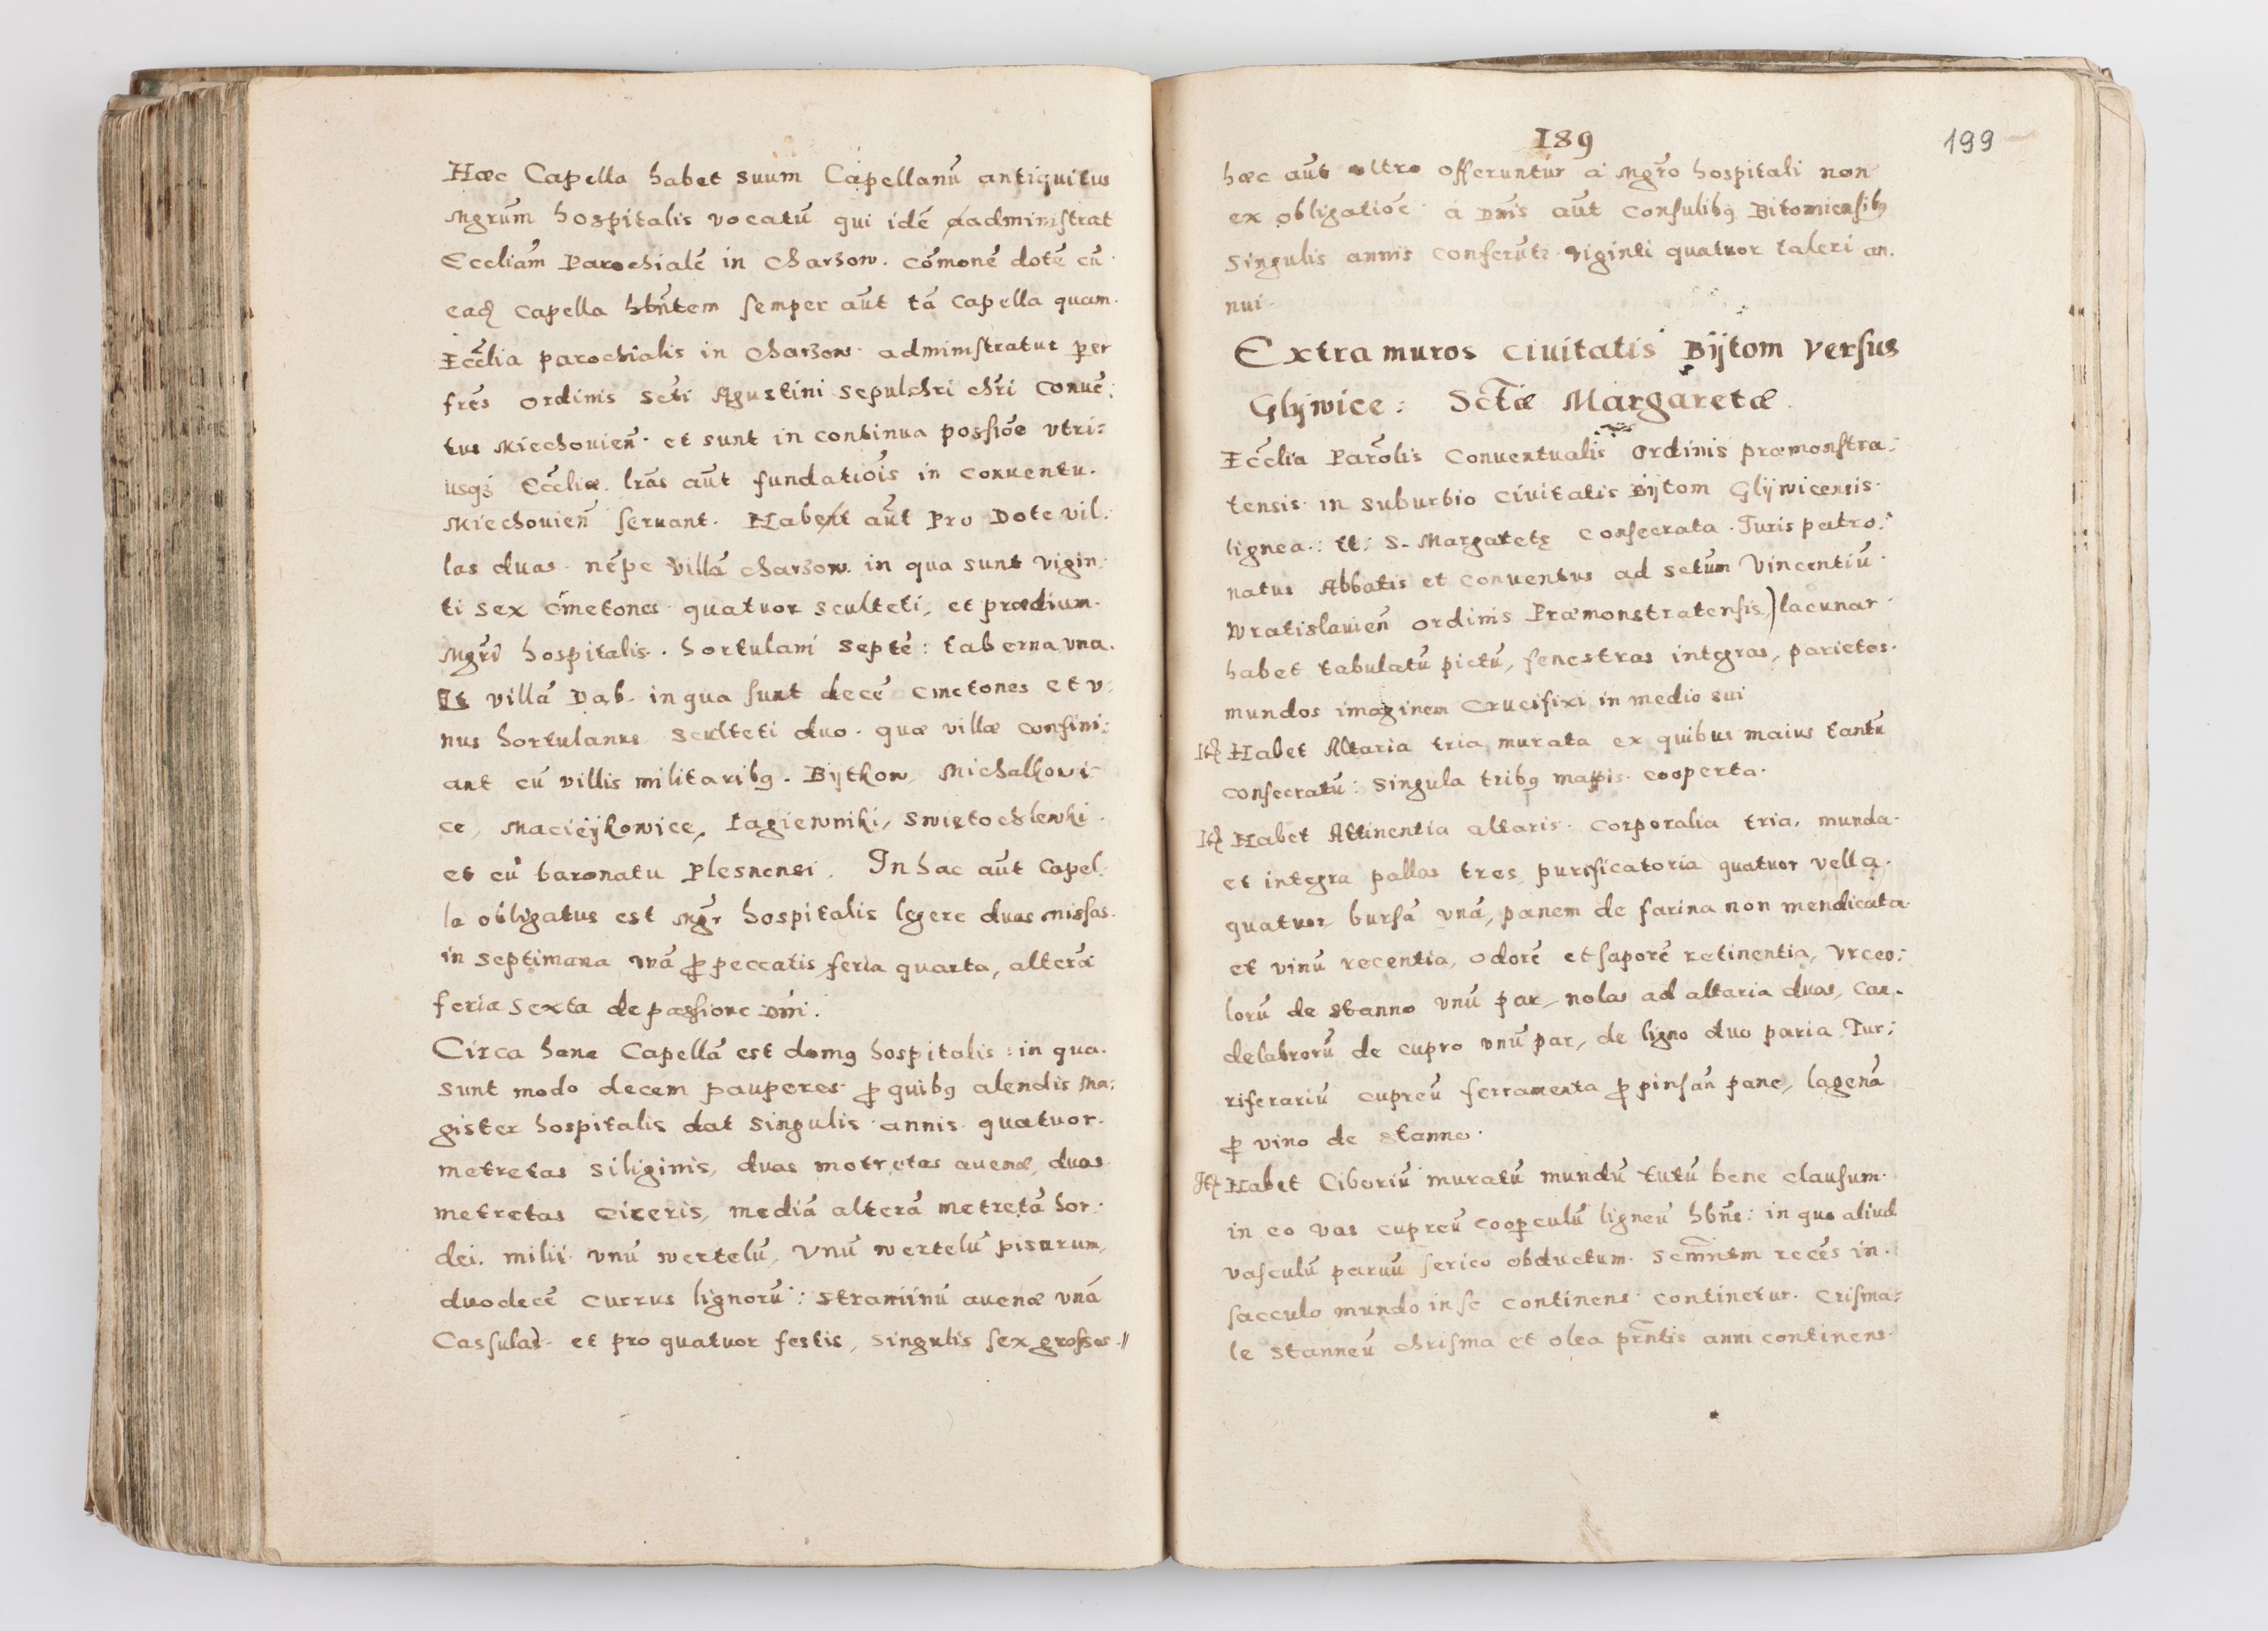 Hæc Capella habet suum Capellanū antiquitus
Mgrūm hospitalis vocatū qui idē administrat
Eccliam̄ Parochialē in Charzow. cōmonē dotē cū
eadꝫ Capella hbñtem semper aūt tā Capella quam
Ecc̄lia parochialis in Charzow administratur per
frēs ordinis Scti Agustini Sepulchri chri Conuē:
tus Miechouien̄. et sunt in continua posſiōe vtri:
usqꝫ Ecc̄liæ. lrās aūt fundatiōis in Conuentu.
Miechouien̄ seruant. Habent aūt Pro Dote vil:
las duas. nēpe villā Charzow in qua sunt vigin:
ti sex cmetones quatuor sculteti, et prædium.
Mgr̄i hospitalis. hortulani septē: taberna vna.
It villā Dąb. in qua sunt decē cmetones et v:
nus hortulanus Sculteti duo. quæ villæ confini:
ant cū villis militaribꝰ. Bÿtkow, Michalkowi-
ce, Macieÿkowice, Łagiewniki, Swiętochlewki
et cū baronatu Plesnensi. In hac aūt Capel:
la obligatus est Mgr̄ hospitalis legere duas missas.
in septimana vnā ꝓ peccatis feria quarta, alterā
feria Sexta de pasſione Dn̄i.
Circa hanc Capellā est domꝰ hospitalis: in qua.
sunt modo decem pauperes ꝓ quibꝰ alendis Ma:
gister hospitalis dat singulis annis quatuor.
metretas siliginis, duas metretas auenæ, duas
metretas ciceris, mediā alterā metretā hor:
dei. milii vnū wertelū, Vnū wertelū pisarum,
duodecē currus lignorū: straminū auenæ vnā
Cassulad. et pro quatuor festis, singulis sex grosſos.//
189
199
hæc aūt vltro offeruntur a Mgrō hospitali non
ex obligatiōe a Dn̄is aūt Consulibꝰ Bitomiensibꝰ
Singulis annis conferūtr viginti quatuor taleri an.
nui.
Extra muros ciuitatis Bÿtom versus
Glÿwice: Sctæ Margaretæ.
Ecc̄lia Parōlis Conuentualis Ordinis præmonstra:
tensis in suburbio ciuitatis Bÿtom Glÿwicensis
lignea: tt: S. Margaretę Consecrata. Iuris patro:
natus Abbatis et Conuentus ad Sctum Vincentiū
Wratislauien̄ Ordinis Præmonstratensis) lacunar
habet tabulatū pictū, fenestras integras, parietes
mundos imaginem Crucifixi in medio sui
Itꝫ Habet Altaria tria murata ex quibus maius tantū
consecratū: Singula tribꝰ mappis cooperta.
Itꝫ Habet Attinentia altaris Corporalia tria, munda
et integra pallas tres, purificatoria quatuor vella
quatuor bursā vnā, panem de farina non mendicata
et vinū recentia, odorē et saporē retinentia, Vrceo:
lorū de stanno vnū par, nolas ad altaria duas, Can.
delabrorū de cupro vnū par, de ligno duo paria Tur:
riferariū cupreū ferramenta ꝓ pinsan̄ pane, lagenā
ꝓ vino de stanno.
Itꝫ Habet Ciboriū muratū mundū tutū bene clausum.
in eo vas cupreū cooperculū ligneū hbñs: in quo aliud
vasculū paruū serico obductum. Scmntm recēs in.
sacculo mundo in se continens continetur. Crisma:
le stanneū chrisma et olea prn̄tis anni continens.